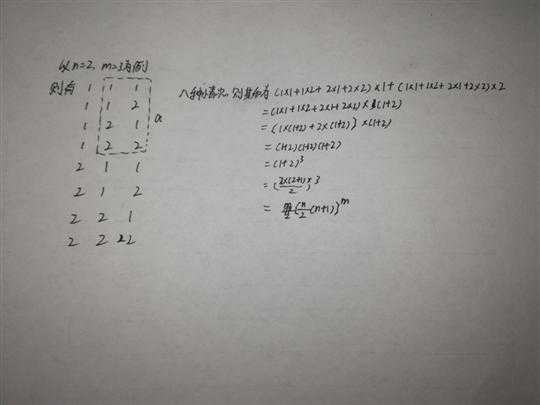 以n=2, m=3为例
则有 1 1 1
1 1 2
1 2 1
1 2 2
a
2 1 1
2 1 2
2 2 1
2 2 2
八种情况, 则其和为 (1×1+1×2+2×1+2×2)×1+(1×1+1×2+2×1+2×2)×2
=(1×1+1×2+2×1+2×2)×(1+2)
=(1×(1+2)+2×(1+2))×(1+2)
=(1+2)(1+2)(1+2)
=(1+2)³
=(2×(2+1)/2)³
=[n/2(n+1)]^m